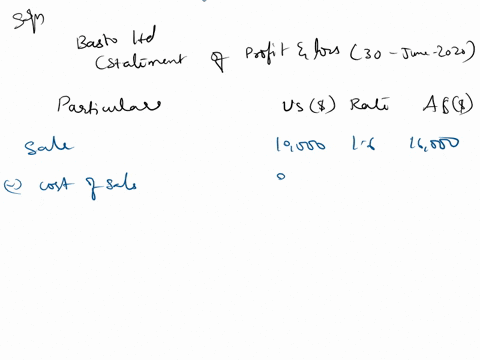 Soln
Basto ltd
(Statement of Profit & loss (30-June-2020)
Particulars US ($) Rate A$ ($)
Sale 10,000 1.6 16,000
(-) Cost of Sale 8